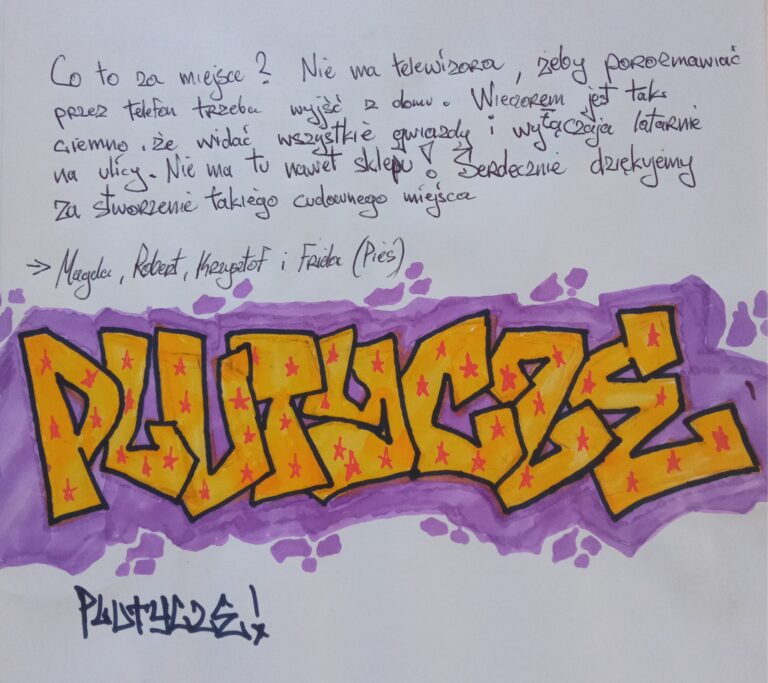 Co to za miejsce? Nie ma telewizora, żeby porozmawiać
przez telefon trzeba wyjść z domu. Wieczorem jest tak
ciemno, że widać wszystkie gwiazdy i wyłączają latarnie
na ulicy. Nie ma tu nawet sklepu! Serdecznie dziękujemy
za stworzenie takiego cudownego miejsca
→ Magda, Robert, Krzysztof i Frida (Pies)
PLUTYCZE
PLUTYCZE!